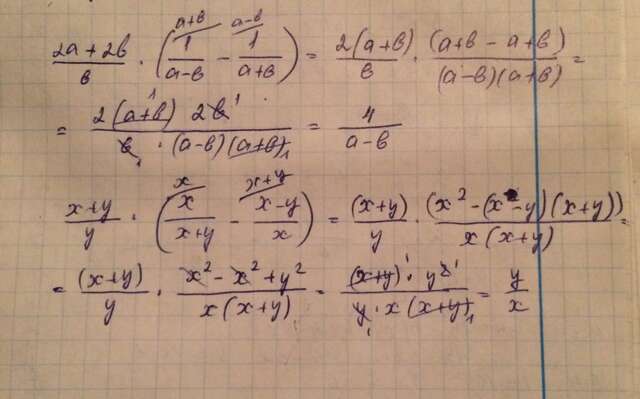 2a+2b/b · (1/a-b ^a+b - 1/a+b ^a-b) = 2(a+b)/b · (a+b-a+b)/(a-b)(a+b) =
= 2(a+b) 2b/b · (a-b)(a+b) = 4/a-b
x+y/y · (x/x+y ^x - x-y/x ^x+y) = (x+y)/y · (x²-(x-y)(x+y))/x(x+y) =
= (x+y)/y · x²-x²+y²/x(x+y) = (x+y) · y²/y · x(x+y) = y/x